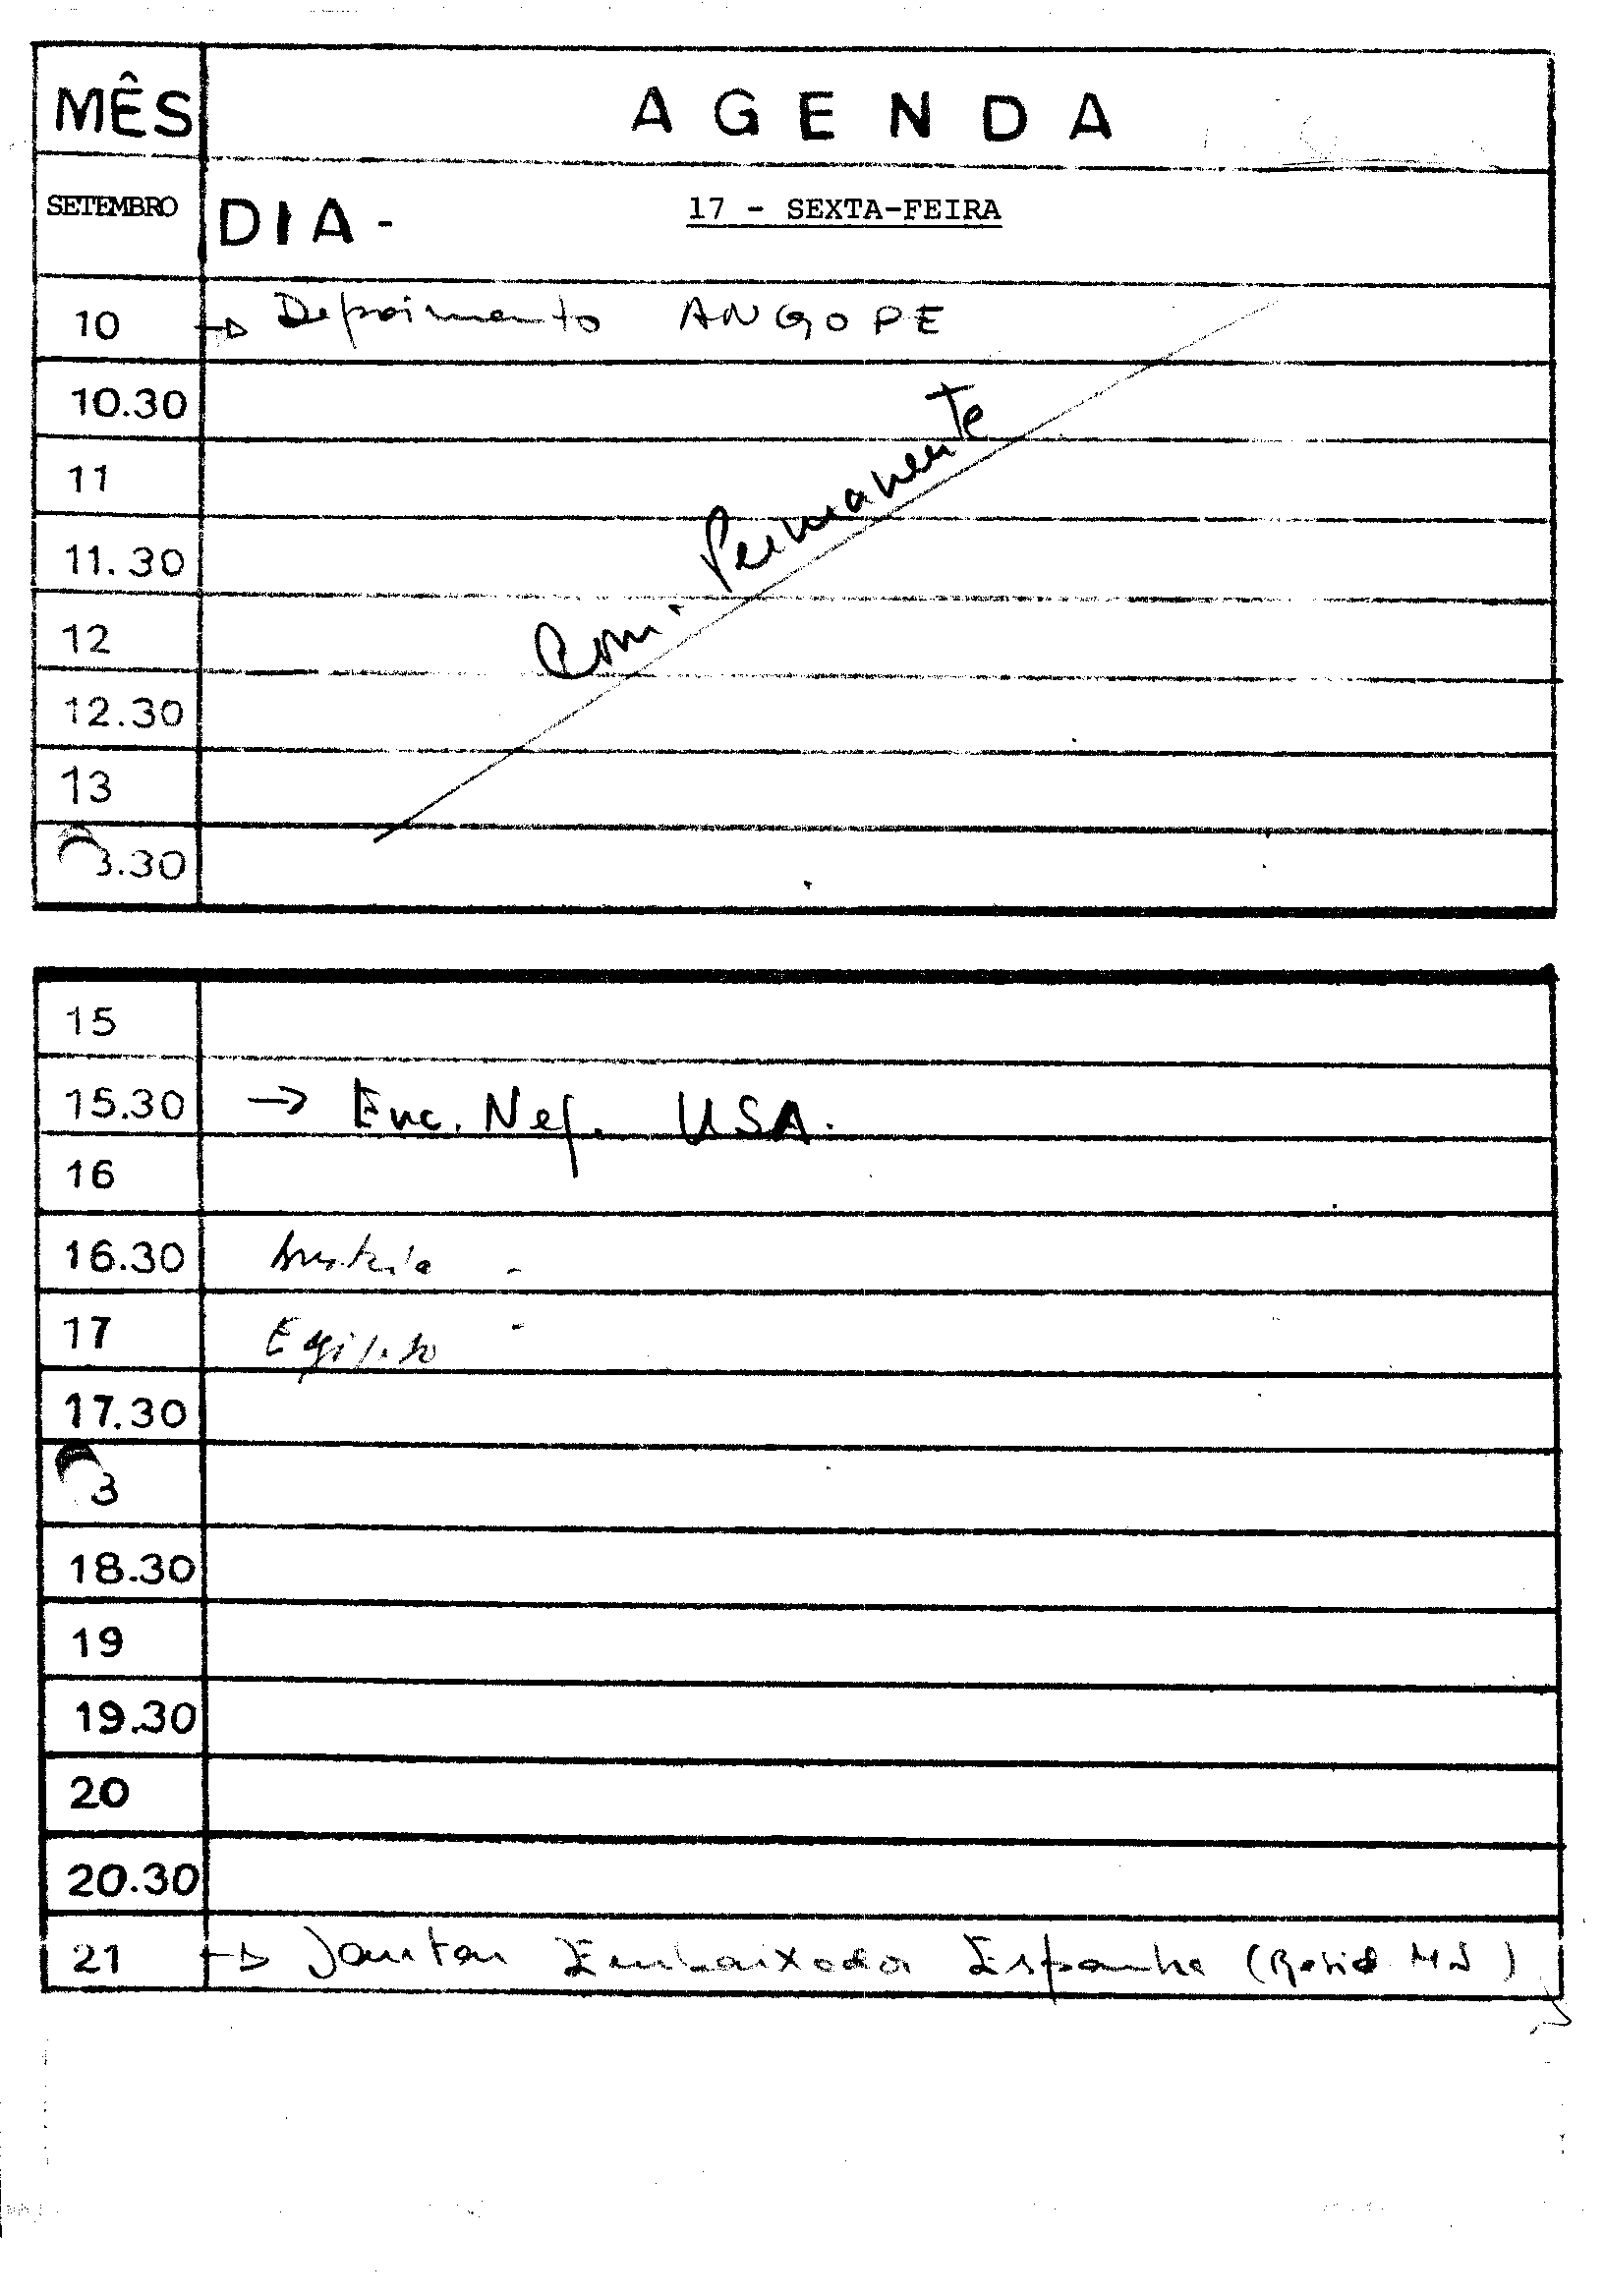 MÊS AGENDA
SETEMBRO DIA - 17 - SEXTA-FEIRA
10 → Depoimento ANGOPE
10.30
11
11.30
Com. Permanente
12
12.30
13
3.30
15
15.30 → Enc. Neg. USA.
16
16.30 Austria -
17 Egipto -
17.30
8
18.30
19
19.30
20
20.30
21 → Jantar Embaixador Espanha (Resid MJ)